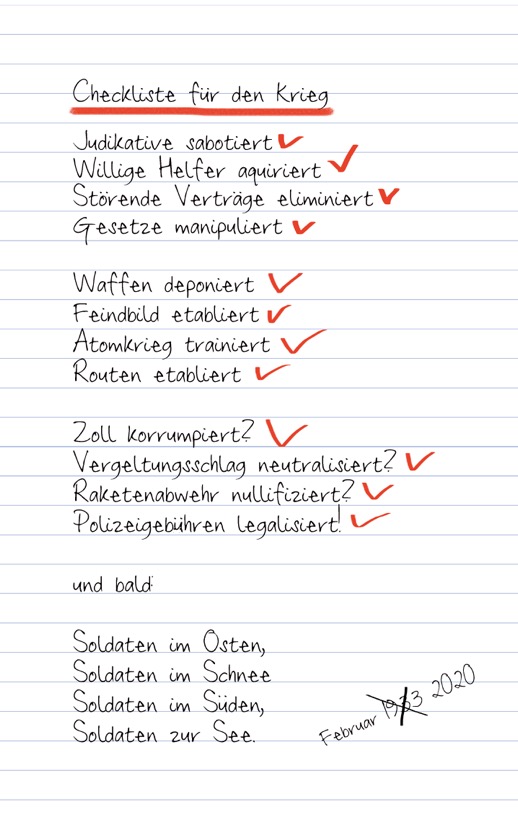 Checkliste für den Krieg
Judikative sabotiert
Willige Helfer aquiriert
Störende Verträge eliminiert
Gesetze manipuliert
Waffen deponiert
Feindbild etabliert
Atomkrieg trainiert
Routen etabliert
Zoll korrumpiert?
Vergeltungsschlag neutralisiert?
Raketenabwehr nullifiziert?
Polizeigebühren legalisiert!
und bald
Soldaten im Osten,
Soldaten im Schnee
Soldaten im Süden,
Soldaten zur See.
Februar 1933 2020